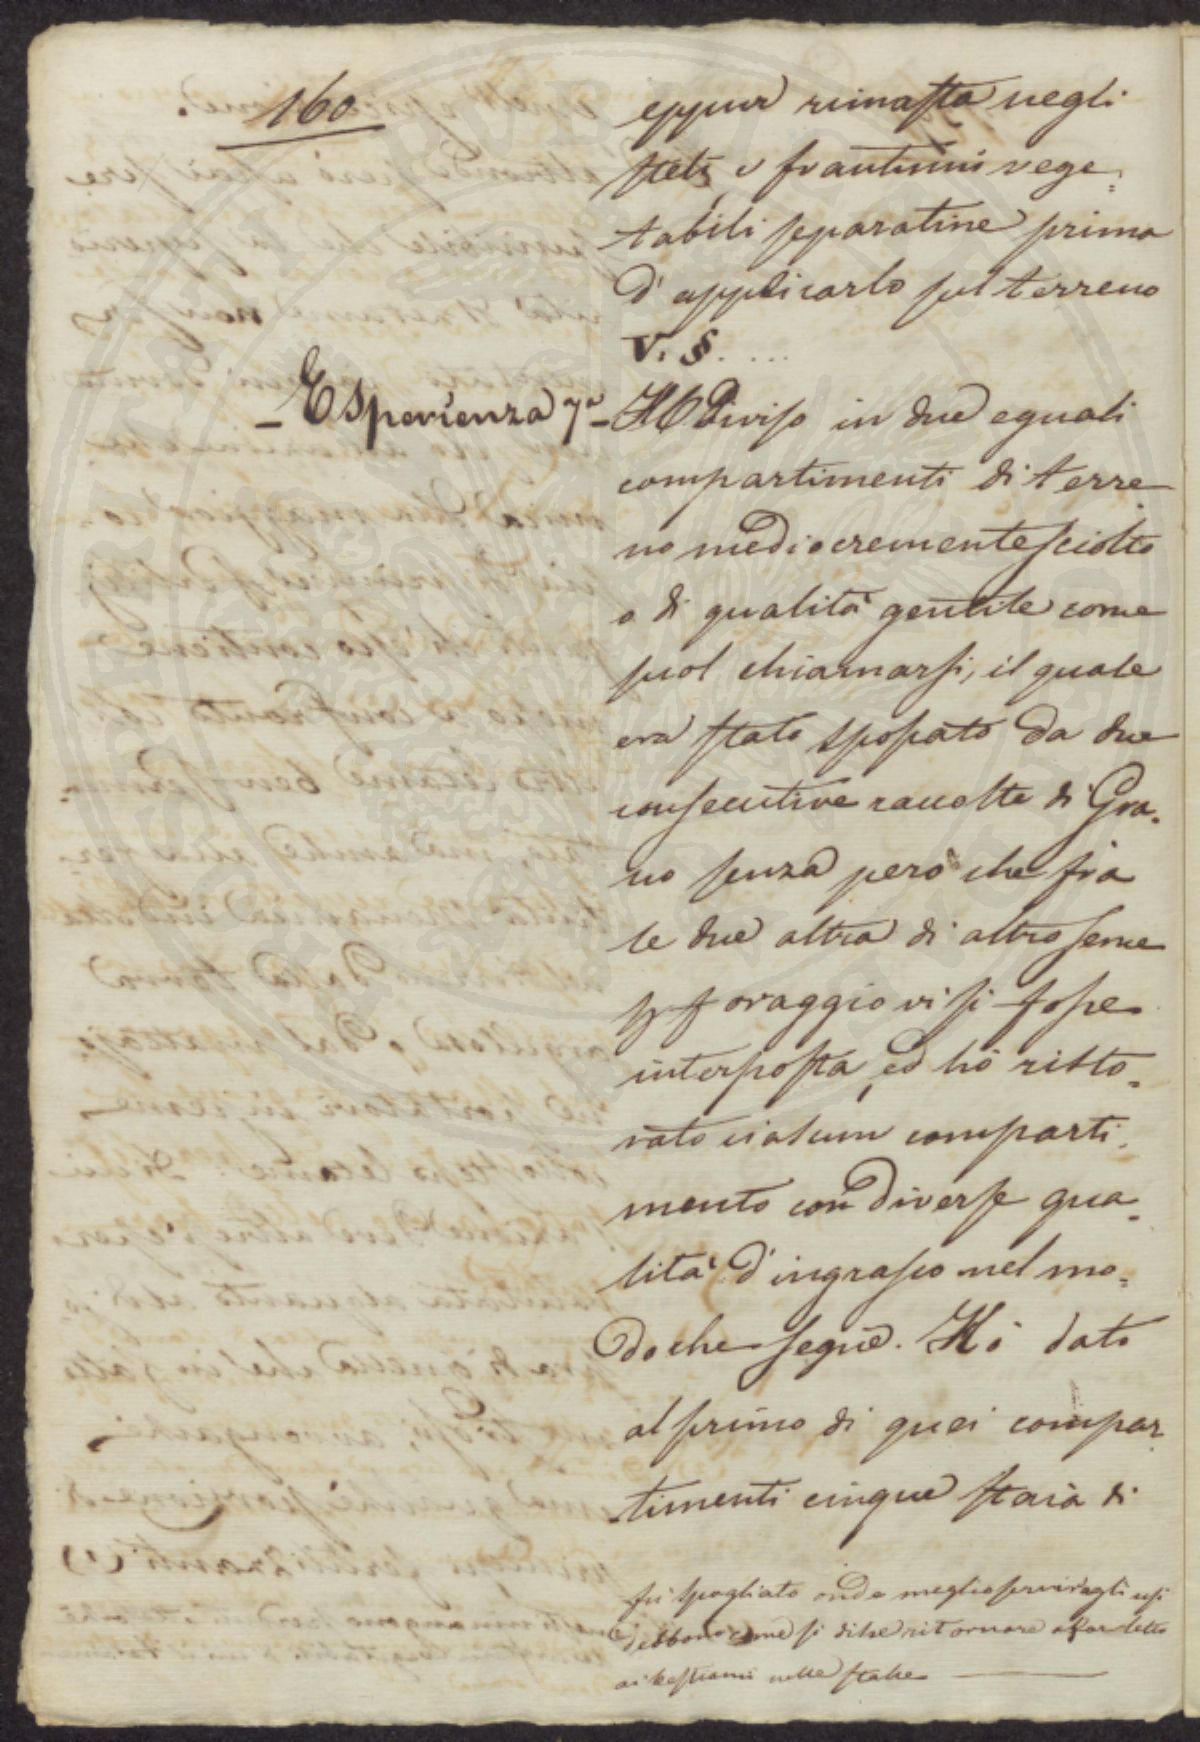 160
eppur rimasta negli
steli, e frantumi vege=
tabili separatine prima
d'applicarlo sul terreno
V. §. ....
- Esperienza 7a - Hò diviso in due eguali
compartimenti di terre
no mediocremente sciolto
o di qualità gentile come
suol chiamarsi, il quale
era stato spossato da due
consecutive raccolte di Gra=
no senza però che fra
le due altra di altro seme
o foraggio vi si fosse
interposta, ed hò risto=
rato ciascun comparti=
mento con diverse qua=
lità d'ingrasso nel mo=
do che segue. Hò dato
al primo di quei compar
timenti cinque staia di
fù spogliato onde meglio servir'agli usi
debbono come si disse ritornare a far letto
ai bestiami nelle stalle